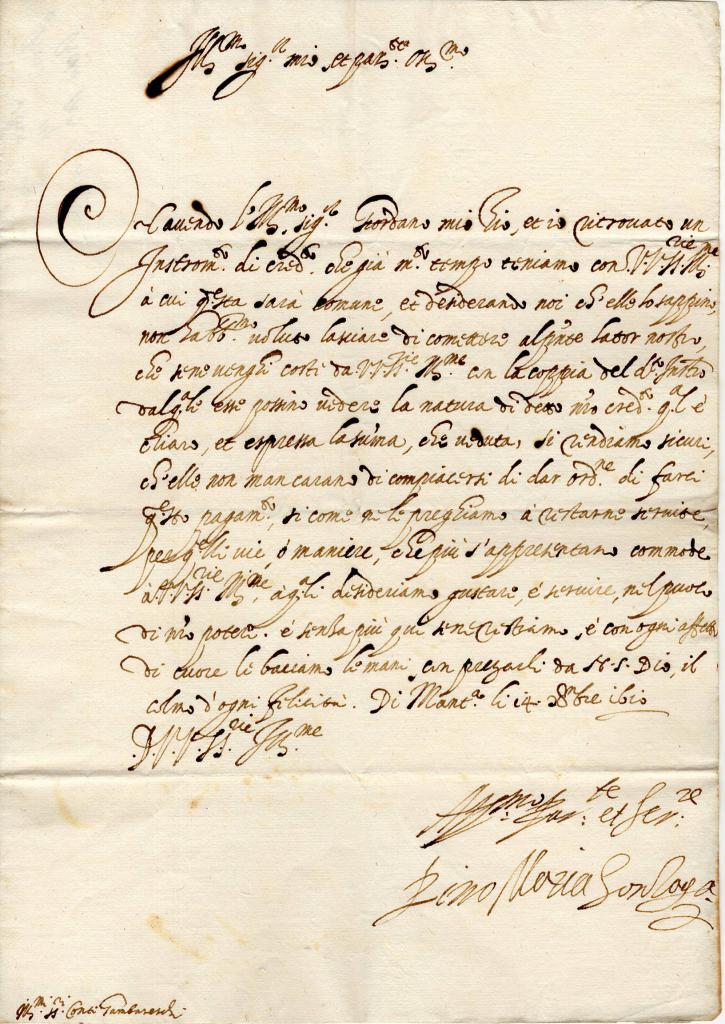 Ill.mo sig.r mio et par.te Oss.mo
Havendo l'Ill.mo sig.r Giordano mio Zio, et io ritrovato un
Instrom.to di cred.to che già m.to tempo teniamo con VV.SS.rie Ill.me
à cui q.sta sarà comune, et desiderando noi ch'elle lo sappino,
non habb.mo voluto lasciare di comettere al p.nte lator nostro,
che sene venghi costi da VV.SS.rie Ill.me con la coppia del d.to Instro
dal q.le esse possino vedere la natura di detto n'ro cred.to q.al è
chiaro, et espressa la suma, che veduta, si rendiamo sicuri,
ch'elle non mancarano di compiacersi di dar ord.ne di farci
q.sto pagam.to, si come ne le preghiamo à restarne servite,
per q.elli vie, ò maniere, che più s'appresentano commode
à VV.SS.rie Ill.me, à q.ali desideriamo gustare, è servire, nel puoco
di n'ro potere. è senza più qui sene restiamo, è con ogni affetto
di cuore le baciamo le mani con pregarli da N.S. Dio, il
colmo d'ogni felicità. Di Mant.a li 14 Xbre 1610
D. VV.SS.rie Ill.me
Aff.mo Par.te et Ser.re
Pirro Maria Gonzaga
Ill.mi SS.ri Conti Gambareschi